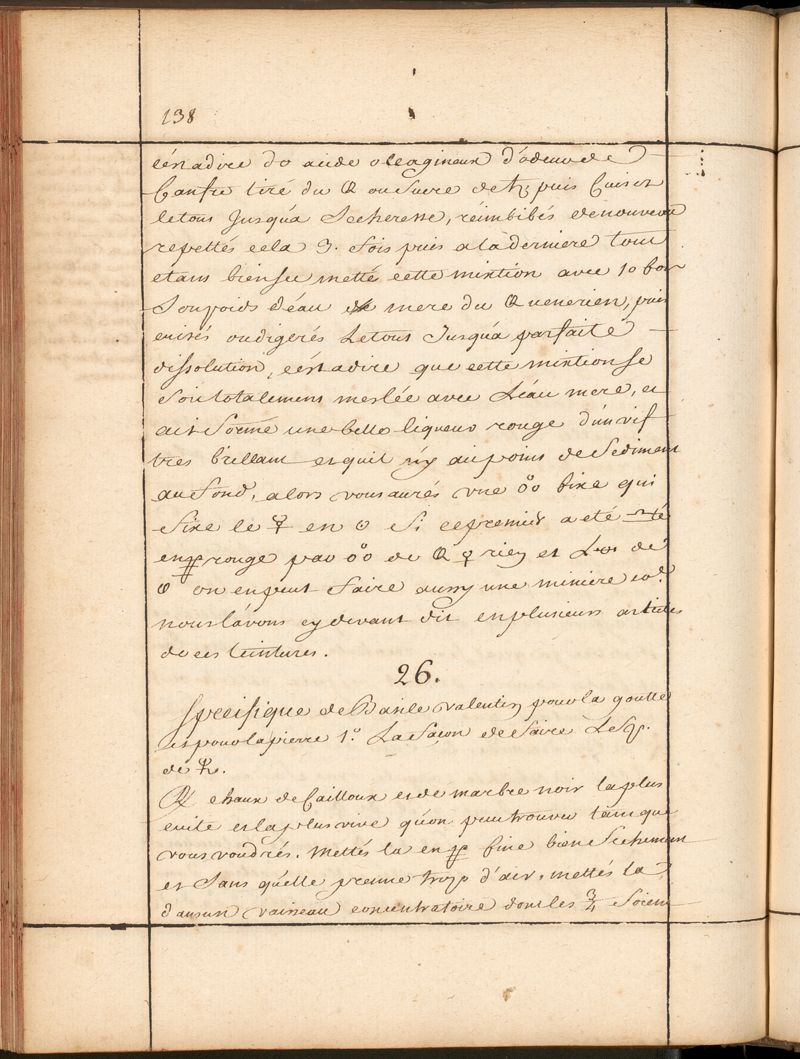 138
c'est adire do acide oleagineux d'odeur de
Canfre tiré du 🜖 ou Sucre de ♄, puis Cuisez
letous Jusqu'a Secheresse, reimbibés denouveau
repettés cela 3. fois puis ala derniere tout
etant bien sec mettés cette mixtion avec 10 fois
Son poids d'eau mere du venerien, puis
cuisés oudigerés Letout Jusqu'a parfaite
dissolution, c'est adire que cette mixtion se
Soit totalement meslée avec L'eau mere, et
ait formé une belle liqueur rouge d'un vif
tres brillant et quil n'y ait point de Sediment
au fond, alors vous aurés une fixe qui
fixe le ☿ en ☉ Si ce premier a eté
en rouge par de et de
☉ on en peut faire aussy une miniere co.e
nous l'avons cy devant dit en plusieurs articles
de ces teintures.
26.
Specifique de Basile Valentin pour la goutte
et pour la pierre 1.o La façon de faire L'esp.
de
chaux de Cailloux et de marbre noir la plus
cuite et la plus vive qu'on peut trouver tant que
vous voudrés. mettés la en fine bien Sechement
et Sans qu'elle prenne trop d'air, mettés la
dans un vaisseau concentratoire dont les 3/4 Soient